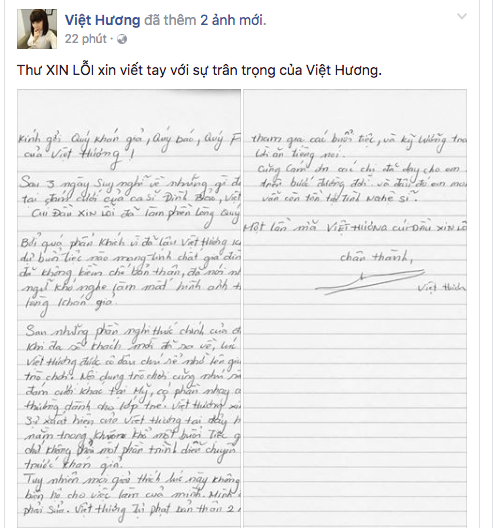 Việt Hương đã thêm 2 ảnh mới.
22 phút
Thư XIN LỖI xin viết tay với sự trân trọng của Việt Hương.
Kính gởi Quý khán giả, Quý báo, Quý F
của Việt Hương !
Sau 3 ngày Suy nghĩ về những gì đ
tại đám cưới của ca sĩ Đinh Bảo, Việt
CÚI ĐẦU XIN LỖI đã làm phiền lòng Quý
Bởi quá phấn khích vì đã lâu Việt Hương k
dự buổi tiệc nào mang tính chất gia đìn
đã không kiềm chế bản thân, đã nói nh
ngữ khó nghe làm mất hình ảnh t
lòng khán giả.
Sau những phần nghi thức chính của đ
khi đa số khách mời đã ra về, lúc
Việt Hương được cô dâu chú rể nhờ lên giú
trò chơi. Nội dung trò chơi cũng như
đám cưới khác tại Mỹ, có phần nhạy
thường dành cho lớp trẻ. Việt Hương xi
Sự xuất hiện của Việt Hương tại đây h
nằm trong khuôn khổ một buổi Tiệc g
chứ không phải một phần trình diễn chuyên
trước khán giả.
Tuy nhiên mọi giải thích lúc này không
biện hộ cho việc làm của mình. Mình
phải Sửa. Việt Hương Tự phạt bản thân 2
tham gia các buổi tiệc, và kỹ lưỡng tro
lời ăn tiếng nói.
Cũng Cám ơn các chị đã dạy cho em
trên bước đường đời và đâu đó em
vẫn còn tồn tại Tình Nghệ sĩ.
Một lần nữa VIỆT HƯƠNG CÚI ĐẦU XIN LỖ
chân thành,
Việt Hươn